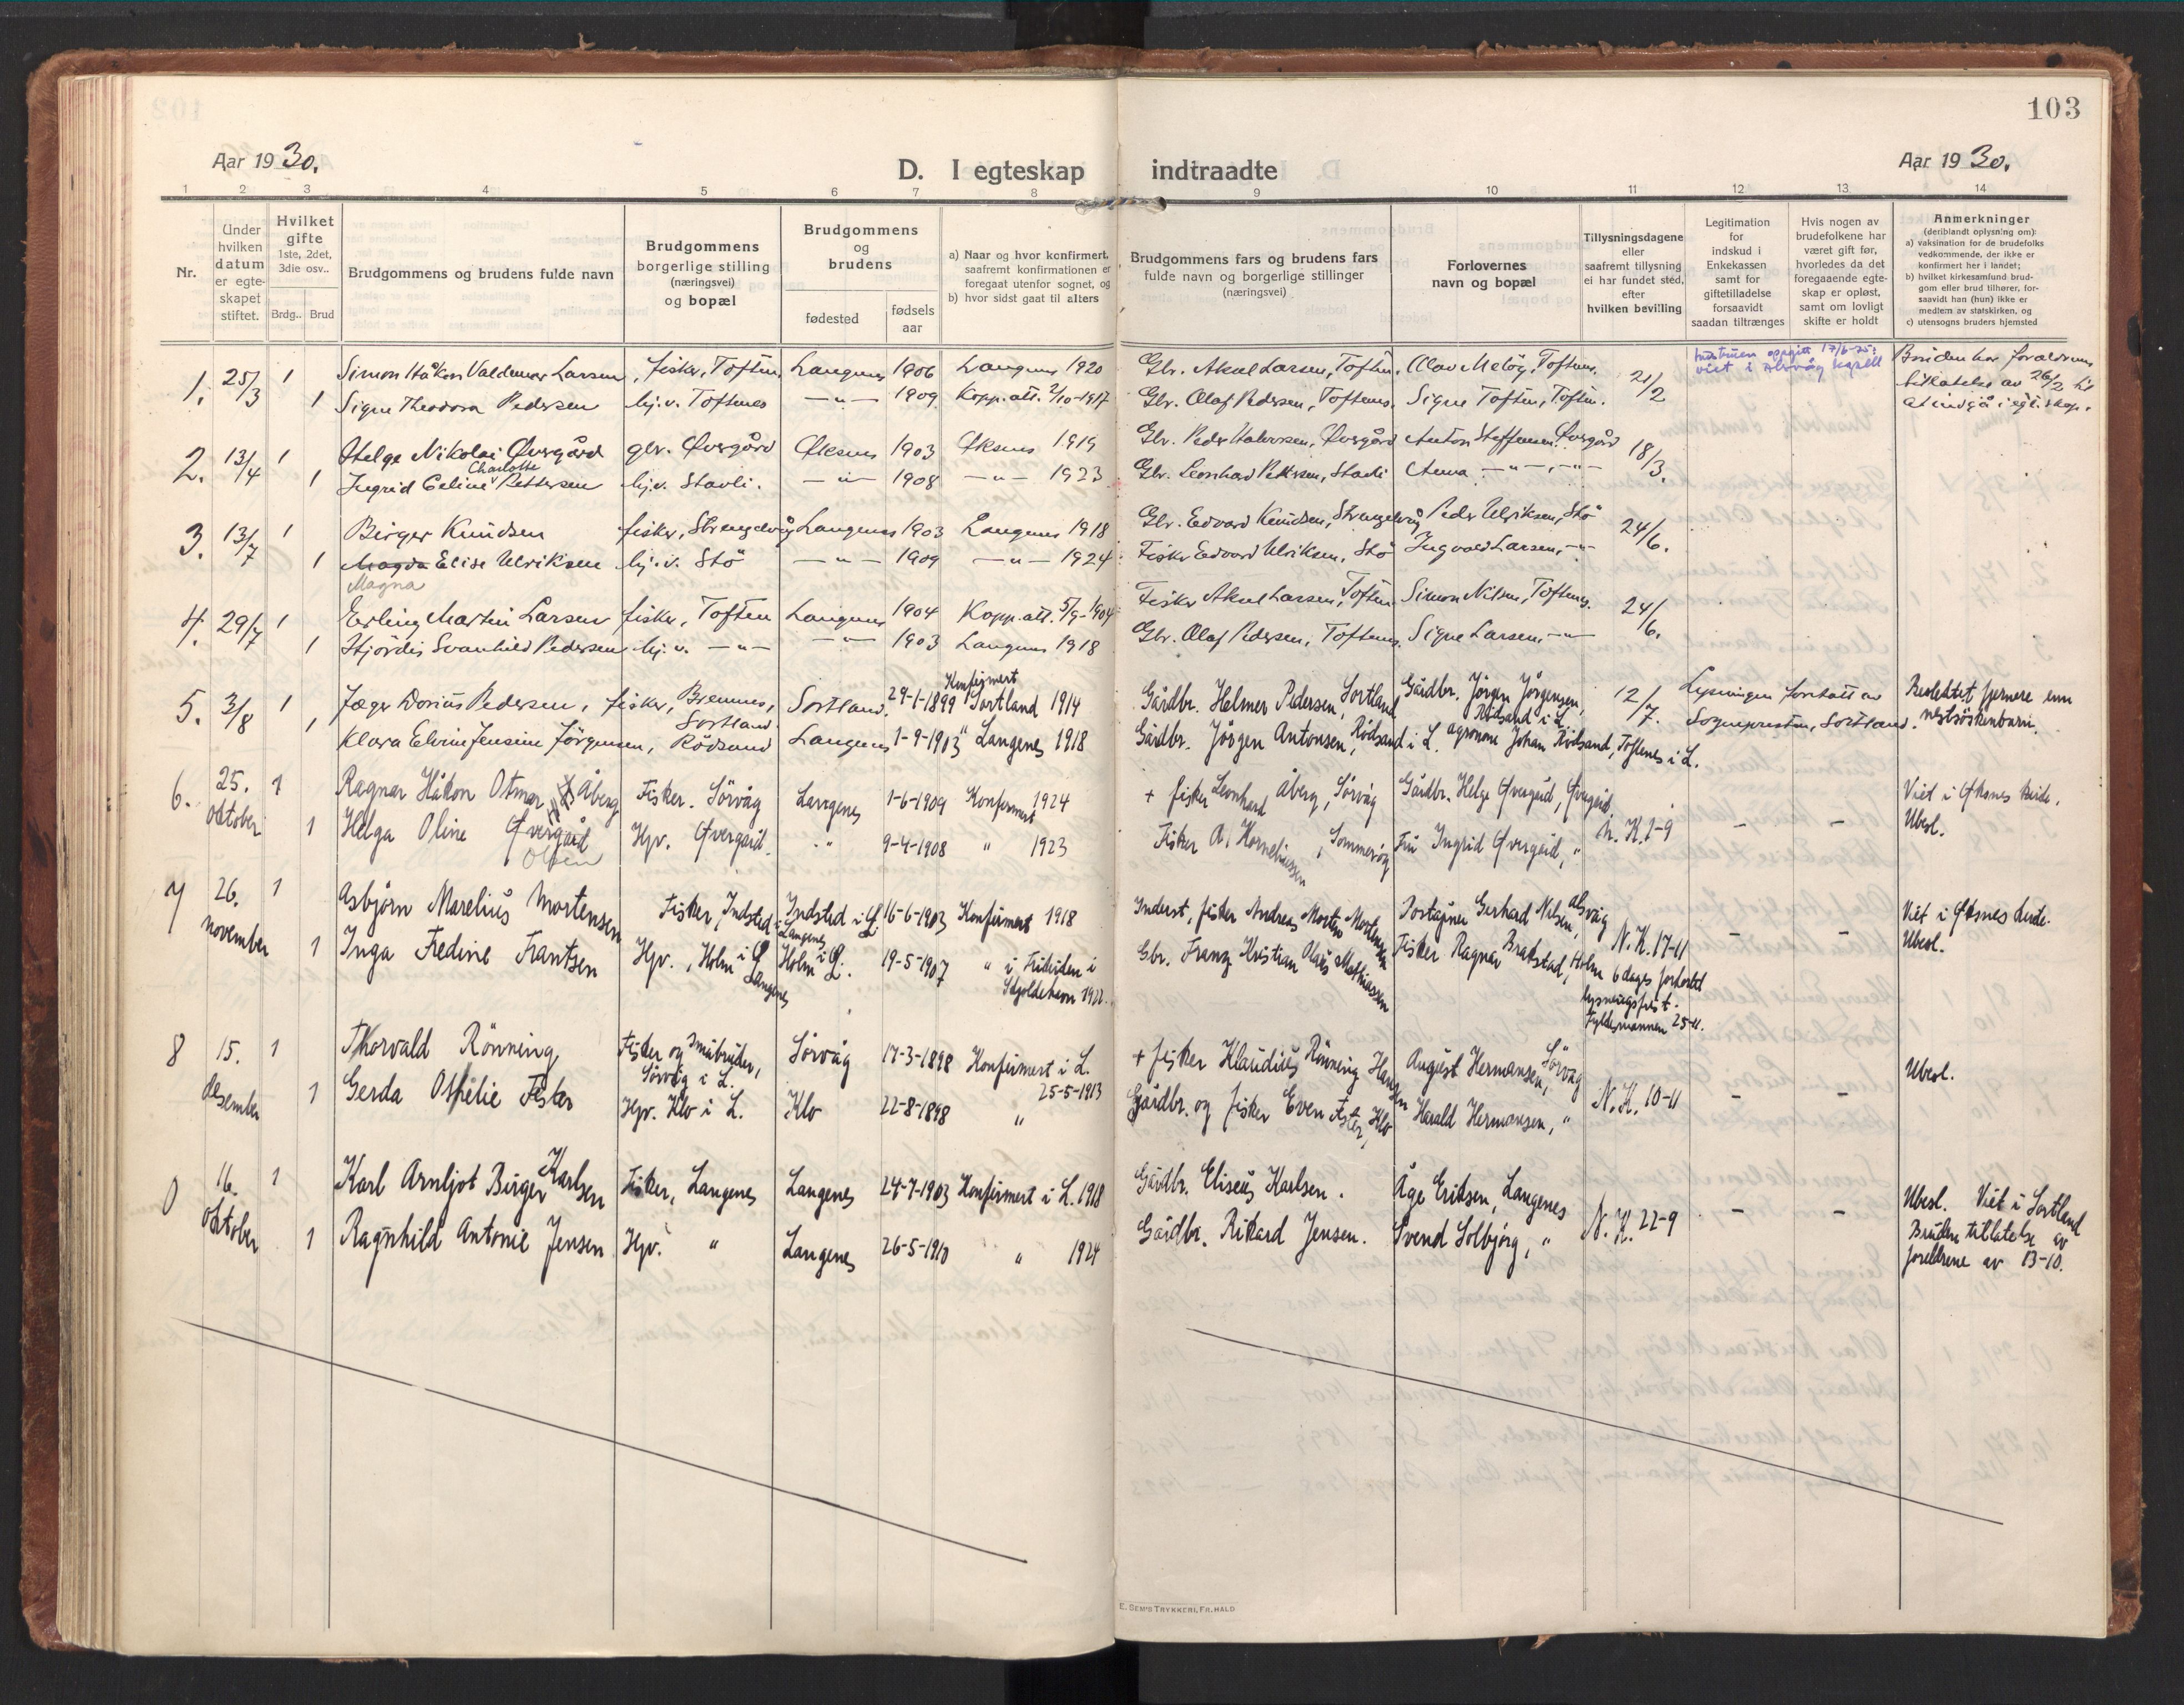 103
Aar 1930.
D. I egteskap indtraadte
Aar 1930.
1 2 3 4 5 6 7 8 9 10 11 12 13 14
Nr.
Under hvilken datum er egteskapet stiftet.
Hvilket gifte
1ste, 2det, 3die osv..
Brdg.. Brud
Brudgommens og brudens fulde navn
Brudgommens borgerlige stilling (næringsvei) og bopæl
Brudgommens og brudens
fødested
fødsels aar
a) Naar og hvor konfirmert, saafremt konfirmationen er foregaat utenfor sognet, og
b) hvor sidst gaat til alters
Brudgommens fars og brudens fars fulde navn og borgerlige stillinger (næringsvei)
Forlovernes navn og bopæl
Tillysningsdagene eller saafremt tillysning ei har fundet sted, efter hvilken bevilling
Legitimation for indskud i Enkekassen samt for giftetilladelse forsaavidt saadan tiltrænges
Hvis nogen av brudefolkene har været gift før, hvorledes da det foregaaende egteskap er opløst, samt om lovligt skifte er holdt
Anmerkninger
(deriblandt oplysning om):
a) vaksination for de brudefolks vedkommende, der ikke er konfirmert her i landet;
b) hvilket kirkesamfund brudgom eller brud tilhører, forsaavidt han (hun) ikke er medlem av statskirken, og
c) utensogns bruders hjemsted
1. 25/3 1 Simon Håkon Valdemar Larsen, fisker, Toften. Langenes 1906 Langenes 1920 Gbr. Aksel Larsen, Toften. Olav Meløy, Toftenes. 21/2 viet i Alsvåg kapell
1 Signe Theodora Pedersen hj.v. Toftenes —"— 1909 Kopp.att. 2/10-1917 Gbr. Olaf Pedersen, Toftenes. Signe Toften, Toften.
Bruden har forældrenes tillatelse av 26/2 til at indgå i egteskap.
2. 13/4 1 Helge Nikolai Øvergård gbr. Øvergård Øksnes 1903 Øksnes 1919 Gbr. Peder Halvorsen, Øvergård Anton Steffensen, Øvergård 18/3.
1 Ingrid Celine Charlotte Pettersen hj.v. Stavli. —"— 1908 —"— 1923 Gbr. Leonhard Pettersen, Stavli Anna —"—,—"—
3. 13/7 1 Birger Knudsen fisker, Strengelvåg Langenes 1903 Langenes 1918 Gbr. Edvard Knudsen, Strengelvåg Peder Ulriksen, Stö 24/6.
1 Magda Elise Ulriksen hj.v. Stö —"— 1909 —"— 1924 Fisker Edvard Ulriksen, Stö Ingvald Larsen, —"—
Magna
4. 29/7 1 Erling Martin Larsen fisker, Toften Langenes 1904 Kopp.att. 5/9-1904 Fisker Aksel Larsen, Toften Simon Nilsen, Toftenes. 24/6.
1 Hjördis Svanhild Pedersen hj.v. —"— —"— 1903 Langenes 1918 Gbr. Olaf Pedersen, Toftenes. Signe Larsen, —"—
5. 3/8 1 Jæger Dorius Pedersen, fisker, Bremnes, Sortland. Sortland. 29-1-1899 Konfirmert Sortland 1914 Gårdbr. Helmer Pedersen, Sortland Gårdbr. Jörgen Jörgensen, Rödsand i L. 12/7. Lysningen foretatt av Sognepresten, Sortland. Beslektet fjernere enn nestsöskenbarn.
1 Klara Elvine Jensine Jörgensen, Rödsand Langenes 1-9-1903 " Langenes 1918 Gårdbr. Jörgen Antonsen, Rödsand i L. agronom Johan Rödsand, Toftenes i L.
6. 25. oktober 1 Ragnar Håkon Otmar Åberg Fisker. Sörvåg Langenes 1-6-1909 Konfirmert 1924 + fisker Leonhard Åberg, Sörvåg Gårdbr. Helge Øvergård, Øvergård. N.K. 1-9 — — Viet i Øksnes kirke. Ubesl.
1 Helga Oline Øvergård Hpv. Øvergård. " 9-4-1908 " 1923 Fisker A. Korneliussen, Sommeröy Fru Ingrid Øvergård, "
Olsen
7 26. november 1 Asbjörn Marelius Mortensen Fisker, Indsted i Langenes Indsted i L. 16-6-1903 Konfirmert 1918 Inderst, fisker Andreas Morten Mortensen Poståpner Gerhard Nilsen, Alsvåg N.K. 17-11 — — Viet i Øksnes kirke. Ubesl.
1 Inga Fredine Frantsen Hpv., Holm i Langenes Holm i L. 19-5-1907 " i Frikirken i Skjoldehavn 1922. Gbr. Franz Kristian Olais Mathiassen Fisker Ragnar Brakstad, Holm 6 dages forkortet lysningsfrist. Fylkesmannen 25-11.
8 15. desember 1 Thorvald Rönning Fisker og småbruker, Sörvåg i L. Sörvåg 17-3-1898 Konfirmert i L. 25-5-1913 + fisker Klaudius Rönning Hansen August Hermansen, Sörvåg N.K. 10-11 — — Ubesl.
1 Gerda Othelie Fisker Hpv. Klo i L. Klo 22-8-1898 " Gårdbr. og fisker Even Fisker, Klo Harald Hermansen, "
0 16. oktober 1 Karl Arnljot Birger Karlsen Fisker, Langenes Langenes 24-7-1903 Konfirmert i L. 1918 Gårdbr. Eliseus Karlsen. Åge Eriksen, Langenes N.K. 22-9 — — Ubesl. Viet i Sortland
1 Ragnhild Antonie Jensen Hpv. " Langenes 26-5-1910 " 1924 Gårdbr. Rikard Jensen. Svend Solbjörg, " Bruden tillatelse av foreldrene av 13-10.
E. SEM'S TRYKKERI, FR.HALD